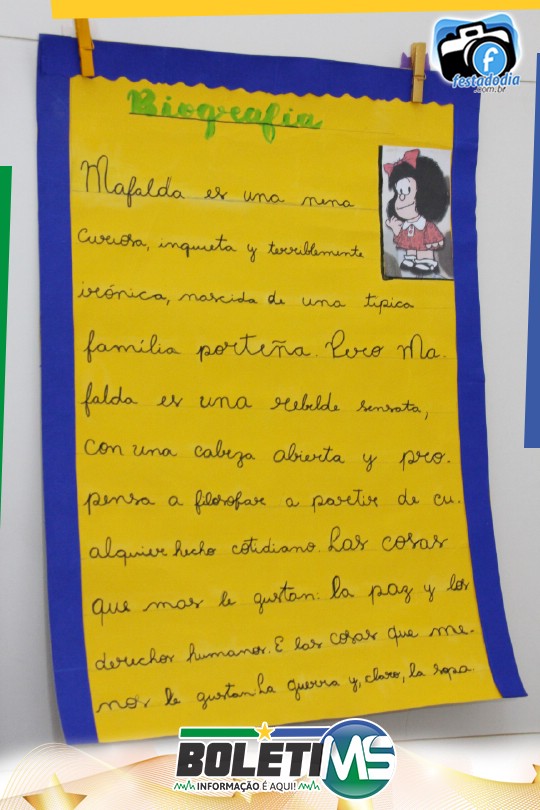 festadodia
.com.br
Biografia
Mafalda es una nena
curiosa, inquieta y terriblemente
irónica, nascida de una tipica
família porteña. Pero Ma-
falda es una rebelde sensata,
con una cabeza abierta y pro-
pensa a filosofar a partir de cu-
alquier hecho cotidiano. Las cosas
que mas le gustan: la paz y los
derechos humanos. E las cosas que me-
nos le gustan La guerra y, claro, la sopa.
BOLETIMS
INFORMAÇÃO É AQUI!